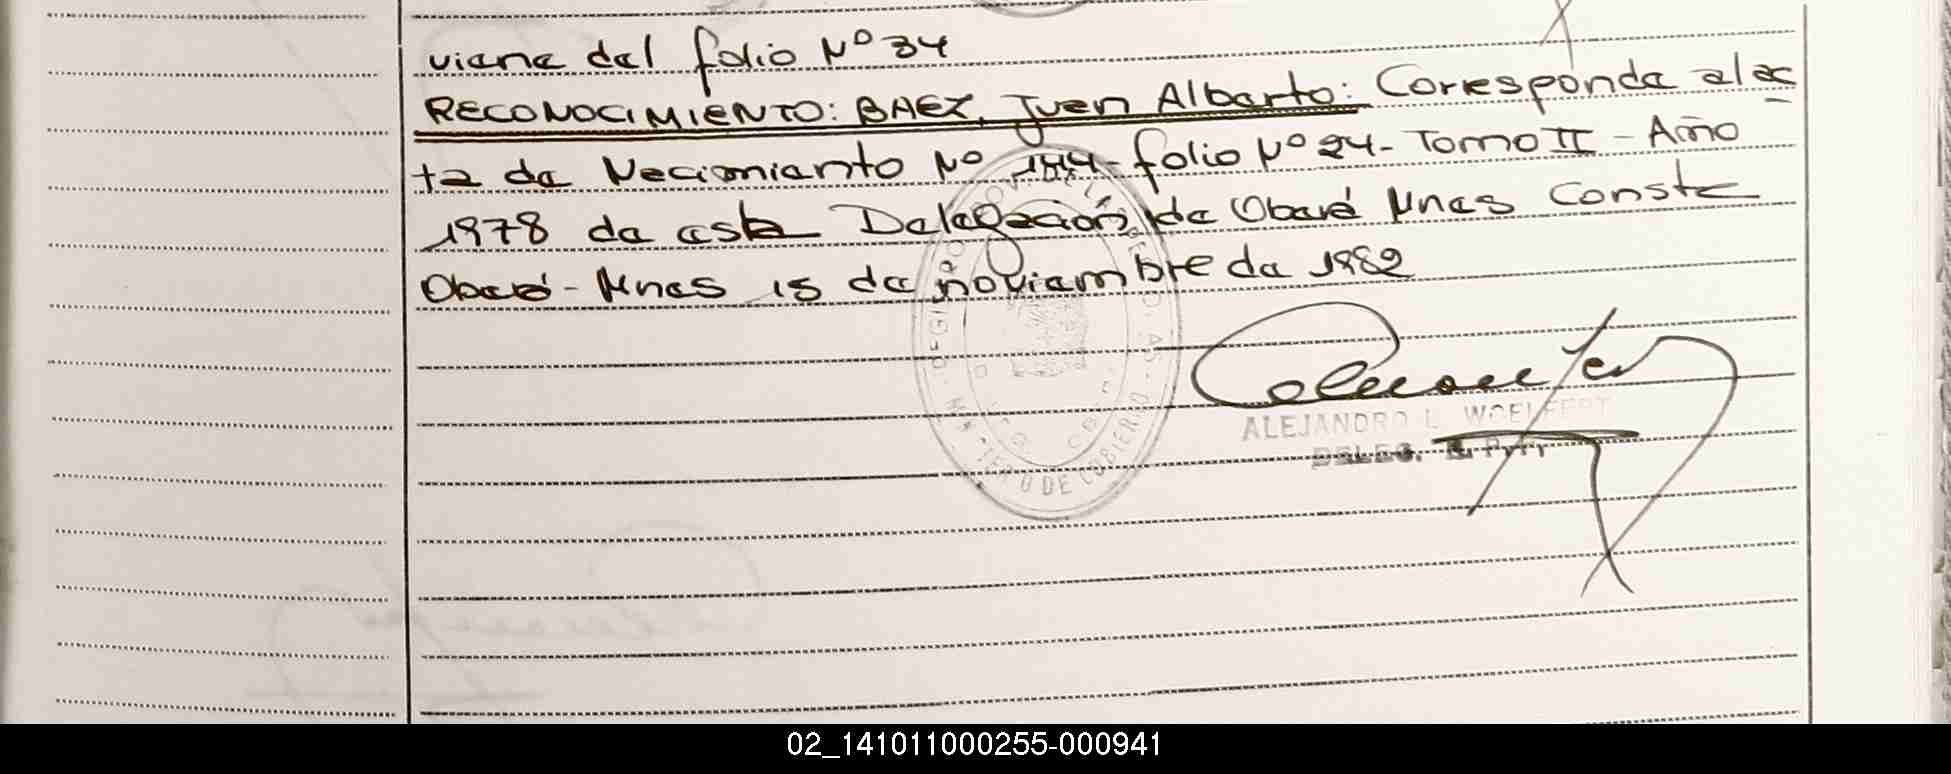 viene del folio Nº 34
RECONOCIMIENTO: BAEZ, Juan Alberto: Corresponde al ac
ta de Nacimiento Nº 144- folio Nº 24- Tomo II - Año
1978 de esta Delegación de Oberá Mnes Conste
Oberá - Mnes 15 de noviembre de 1982
ALEJANDRO L. WOELFERT
DELEG. R.P.P.
02_141011000255-000941